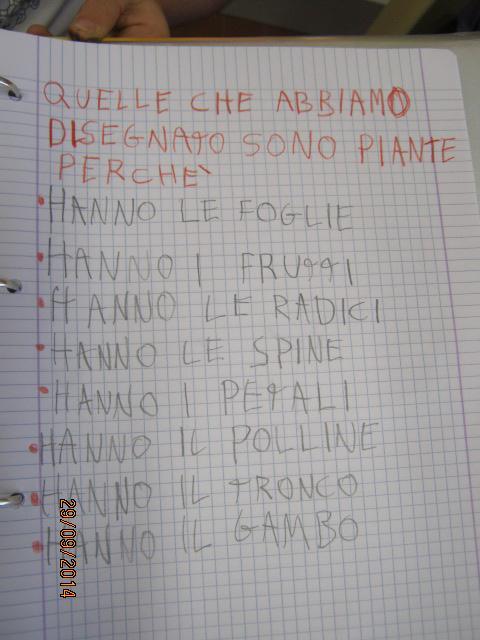 QUELLE CHE ABBIAMO
DISEGNATO SONO PIANTE
PERCHE`
• HANNO LE FOGLIE
• HANNO I FRUTTI
• HANNO LE RADICI
• HANNO LE SPINE
• HANNO I PETALI
• HANNO IL POLLINE
• HANNO IL TRONCO
• HANNO IL GAMBO
29/09/2014